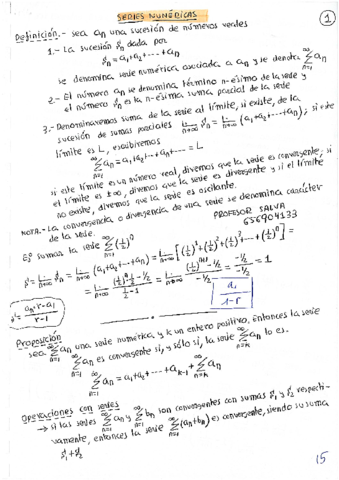 SERIES NUMÉRICAS
1
Definición.- sea an una sucesión de números reales
1.- La sucesión Sn dada por
Sn = a1+a2+···+an
se denomina serie numérica asociada a an y se denota ∞ Σ n=1 an
2.- El número an se denomina término n-ésimo de la serie y
el número Sn es la n-ésima suma parcial de la serie
3.- Denominaremos suma de la serie al límite, si existe, de la
sucesión de sumas parciales L n→∞ Sn = L n→∞ (a1+a2+···+an); si este
límite es L, escribimos
∞ Σ n=1 an = a1+a2+···+an+··· = L
si este límite es un número real, diremos que la serie es convergente; si
el límite es ±∞, diremos que la serie es divergente y si el límite
no existe, diremos que la serie es oscilante.
NOTA.- La convergencia o divergencia de una serie se denomina carácter
de la serie.
PROFESOR SALVA
656904133
Ej sumar la serie ∞ Σ n=1 (1/2)^n
S = L n→∞ Sn = L n→∞ (a1+a2+···+an) = L n→∞ [(1/2)^1+(1/2)^2+(1/2)^3+···+(1/2)^n] =
= L n→∞ (1/2)^n·1/2-1/2 / 1/2-1 = L n→∞ (1/2)^n+1-1/2 / -1/2 = -1/2 / -1/2 = 1
S = an·r-a1 / r-1
a1 / 1-r
Proposición
sea ∞ Σ n=1 an una serie numérica, y k un entero positivo, entonces la serie
∞ Σ n=1 an es convergente si, y sólo si, la serie ∞ Σ n=k an lo es.
∞ Σ n=1 an = a1+a2+···+ak-1+ ∞ Σ n=k an
Operaciones con series
→ si las series ∞ Σ n=1 an y ∞ Σ n=1 bn son convergentes con sumas S1 y S2 respecti-
vamente, entonces la serie ∞ Σ n=1 (an+bn) es convergente, siendo su suma
S1+S2
15